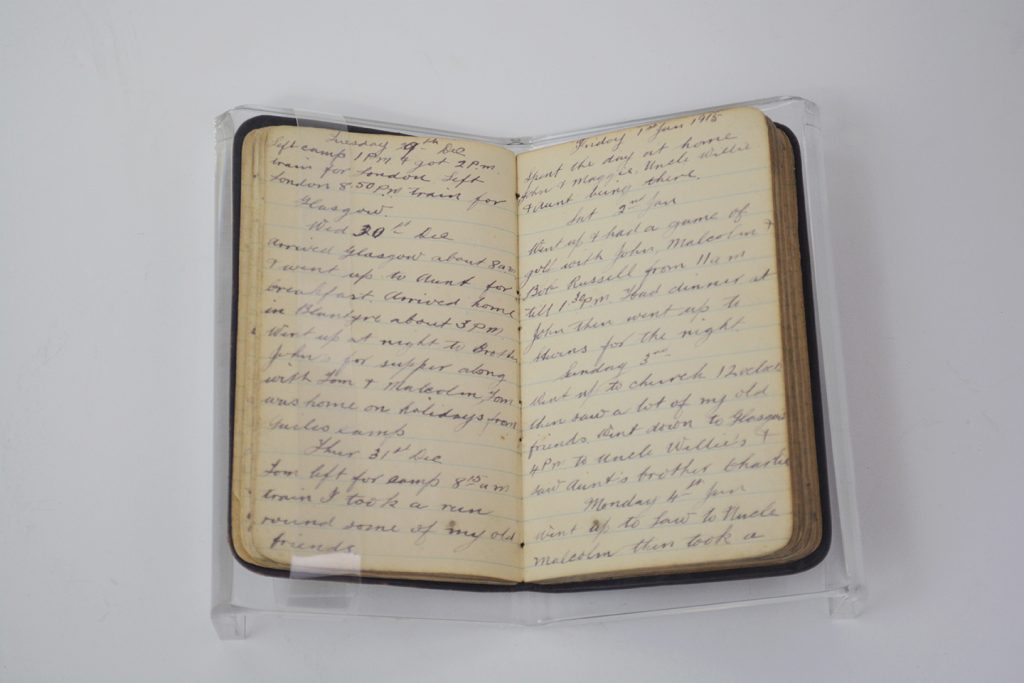 Tuesday 29th Dec
Left camp 1 PM & got 2 P.m.
train for London. Left
London 8.50 PM train for
Glasgow.
Wed 30th Dec
Arrived Glasgow about 8 a.m
& went up to Aunt for
breakfast. Arrived home
in Blantyre about 3 P.M.
Went up at night to Brother
John's for supper along
with Tom & Malcolm, Tom
was home on holidays from
camp
Thur 31st Dec
Tom left for camp 8 15 a m
train I took a run
round some of my old
friends
Friday 1st Jan 1915
Spent the day at home
John & Maggie, Uncle Willie
& Aunt being there.
Sat 2nd Jan
Went up & had a game of
golf with John, Malcolm &
Bob Russell from 11 a m
till 1 30 pm. Had dinner at
John then went up to
for the night.
Sunday 3rd
Went up to church 12 oclock
then saw a lot of my old
friends. Went down to Glasgow
4 Pm to Uncle Willie's &
saw Aunt's brother Charlie
Monday 4th Jan
Went up to Law to Uncle
Malcolm then took a